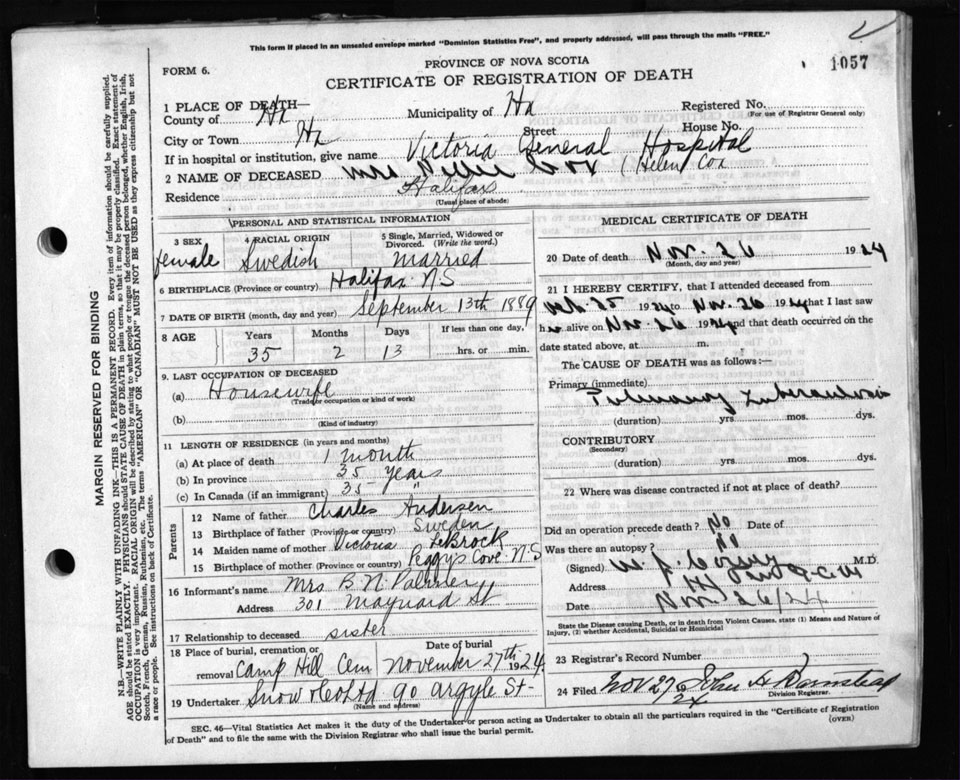 This form if placed in an unsealed envelope marked "Dominion Statistics Free", and properly addressed, will pass through the mails "FREE."
FORM 6.
PROVINCE OF NOVA SCOTIA
1057
CERTIFICATE OF REGISTRATION OF DEATH
1 PLACE OF DEATH—
County of Hx Municipality of Hx Registered No.
(For use of Registrar General only)
City or Town Hx Street House No.
If in hospital or institution, give name Victoria General Hospital
2 NAME OF DECEASED Mrs Nellie Cox (Helen) Cox
Residence Halifax
(Usual place of abode)
PERSONAL AND STATISTICAL INFORMATION
3 SEX 4 RACIAL ORIGIN 5 Single, Married, Widowed or Divorced. (Write the word.)
female Swedish married
6 BIRTHPLACE (Province or country) Halifax N.S
7 DATE OF BIRTH (month, day and year) September 13th 1889
8 AGE Years Months Days If less than one day,
35 2 13 hrs. or min.
9. LAST OCCUPATION OF DECEASED
(a) Housewife
(Trade or occupation or kind of work)
(b)
(Kind of industry)
11 LENGTH OF RESIDENCE (in years and months)
(a) At place of death 1 month
(b) In province 35 years
(c) In Canada (if an immigrant) 35 "
Parents
12 Name of father Charles Andersen
13 Birthplace of father (Province or country) Sweden
14 Maiden name of mother Victoria LeBrock
15 Birthplace of mother (Province or country) Peggys Cove N.S
16 Informant's name Mrs B. N. Palmer
Address 301 Maynard St
17 Relationship to deceased sister
18 Place of burial, cremation or removal Camp Hill Cem Date of burial November 27th 1924
19 Undertaker Snow & Co Ltd 90 Argyle St
(Name and address)
MEDICAL CERTIFICATE OF DEATH
20 Date of death Nov. 26 1924
(Month, day and year)
21 I HEREBY CERTIFY, that I attended deceased from
Oct. 25 1924 to Nov. 26 1924 that I last saw
her alive on Nov. 26 1924 and that death occurred on the
date stated above, at m.
The CAUSE OF DEATH was as follows:—
Primary (immediate)
Pulmonary Tuberculosis
(duration) yrs. mos. dys.
CONTRIBUTORY
(Secondary)
(duration) yrs. mos. dys.
22 Where was disease contracted if not at place of death?
Did an operation precede death? No Date of
Was there an autopsy? No
(Signed) M.D.
Address
Date Nov. 26/24
State the Disease causing Death, or in death from Violent Causes, state (1) Means and Nature of
Injury, (2) whether Accidental, Suicidal or Homicidal
23 Registrar's Record Number
24 Filed Nov 27 24 John H Barnstead
Division Registrar.
SEC. 46—Vital Statistics Act makes it the duty of the Undertaker or person acting as Undertaker to obtain all the particulars required in the "Certificate of Registration
of Death" and to file the same with the Division Registrar who shall issue the burial permit.
(OVER)
MARGIN RESERVED FOR BINDING
N.B.—WRITE PLAINLY WITH UNFADING INK—THIS IS A PERMANENT RECORD. Every item of information should be carefully supplied.
AGE should be stated EXACTLY. PHYSICIANS should STATE CAUSE OF DEATH in plain terms, so that it may be properly classified. Exact statement of
OCCUPATION is very important. RACIAL ORIGIN will be described by stating to what people or tongue the deceased person belonged, whether English, Irish,
Scotch, French, German, Russian, Ruthenian, etc. The terms "AMERICAN" OR "CANADIAN" MUST NOT BE USED as they express citizenship but not
a race or people. See instructions on back of Certificate.